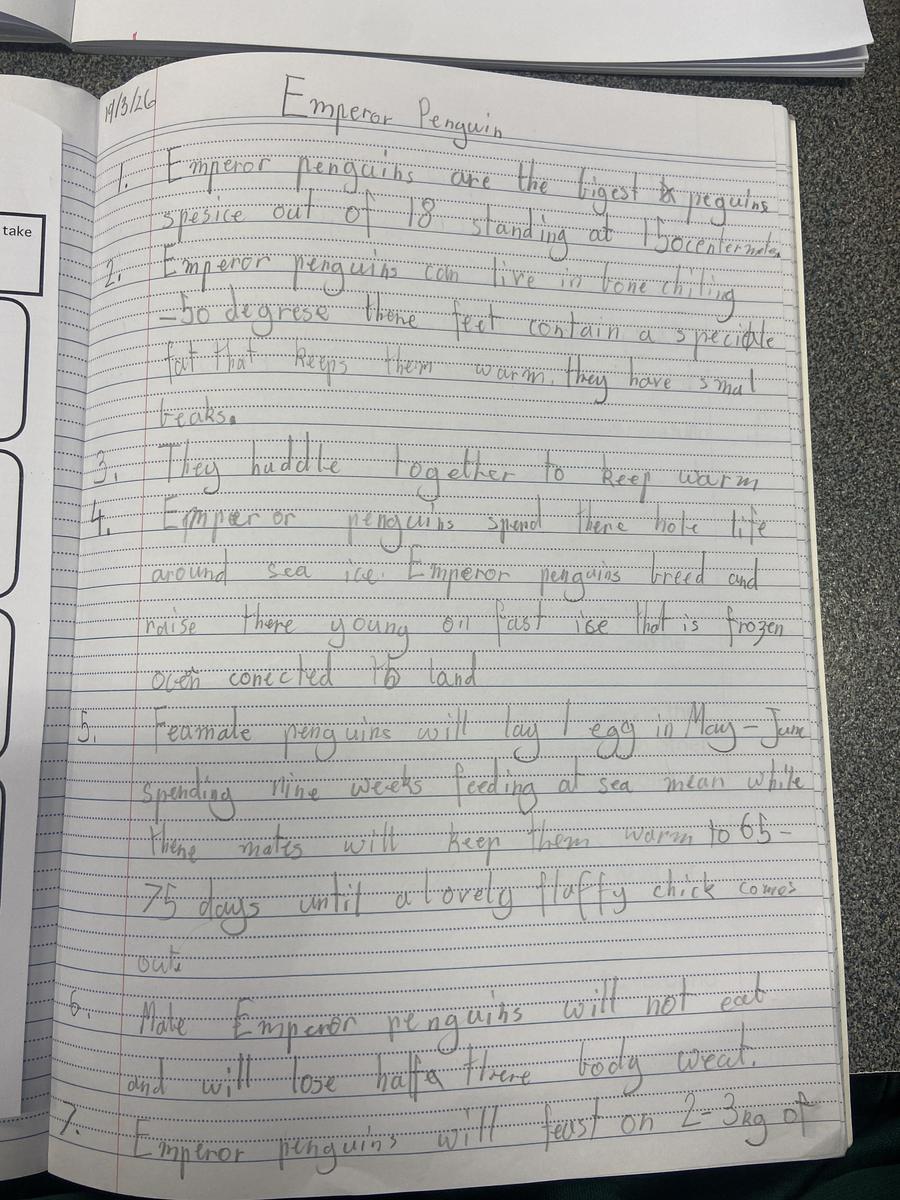 take
19/3/26
Emperor Penguin
1. Emperor penguins are the bigest peguins
spesice out of 18 standing at 150centermeter
2. Emperor penguins can live in bone chiling
-50 degrese there feet contain a speciale
fat that keeps them warm. they have smal
beaks.
3. They huddle together to keep warm
4. Emperor penguins spend there hole life
around sea ice. Emperor penguins breed and
raise there young on fast ise that is frozen
ocen conected to land
5. Feamale penguins will lay 1 egg in May-June
spending nine weeks feeding at sea mean while
there mates will keep them warm to 65-
75 days until a lovely fluffy chick comes
out.
6. Male Emperor penguins will not eat
and will lose half there body weat.
7. Emperor penguins will feast on 2-3kg of